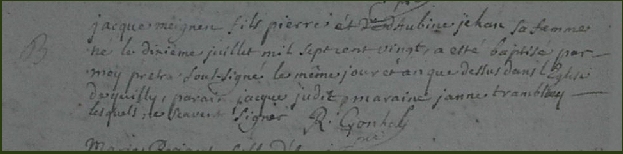 B
jacque meignen fils pierre et de Aubine jehan sa femme
ne le dixième juillet mil sept cent vingt a esté baptisé par
moy pretre sous-signé le même jour et an que dessus dans l'Eglise
de quilly, parain jacque judit, maraine janne tramblay
lesquels ne scavent signer R. Gonhal